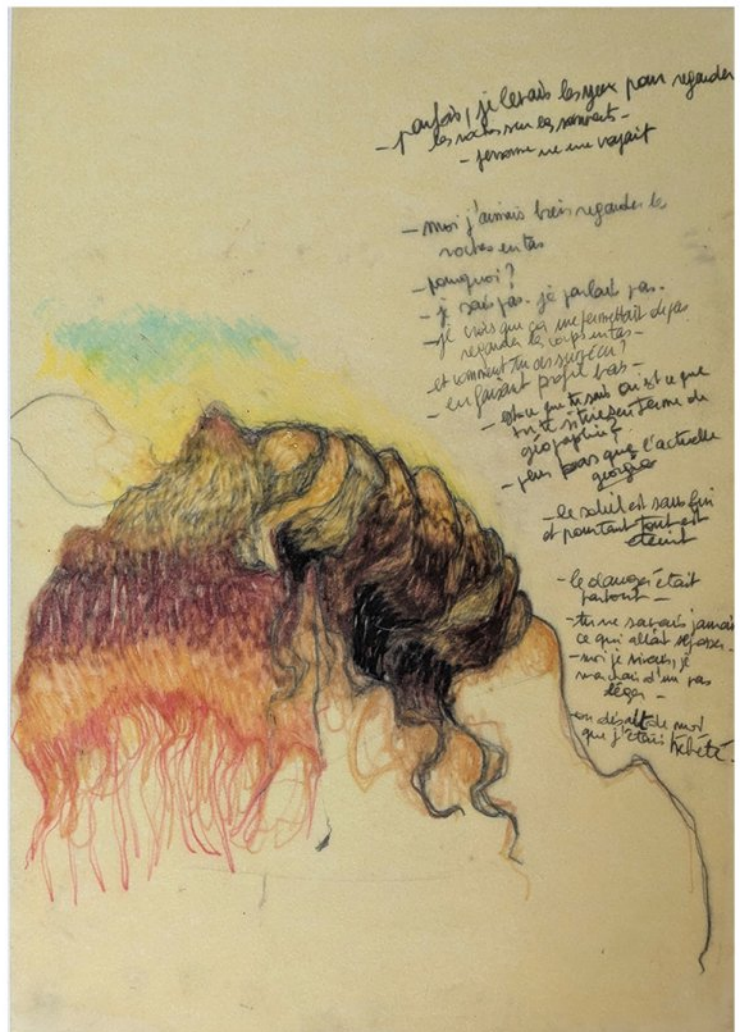 - parfois, je levais les yeux pour regarder
les roches sur les
- personne ne me voyait
- moi j'aimais bien regarder les
roches en tas
- pourquoi ?
- je sais pas. je parlais pas.
- je crois que ça me permettait de pas
regarder les corps en tas -
- et comment tu as survécu ?
- en faisant profil bas -
- est-ce que tu sais où est ce que
tu te situes en terme de
géographie ?
- plus bas que l'actuelle
georgie
- le soleil est sans fin
et pourtant tout est
éteint
- le danger était
partout -
- tu ne savais jamais
ce qui allait se passer -
- moi je je
marchais d'un pas
léger -
- on disait de moi
que j'étais hébété.